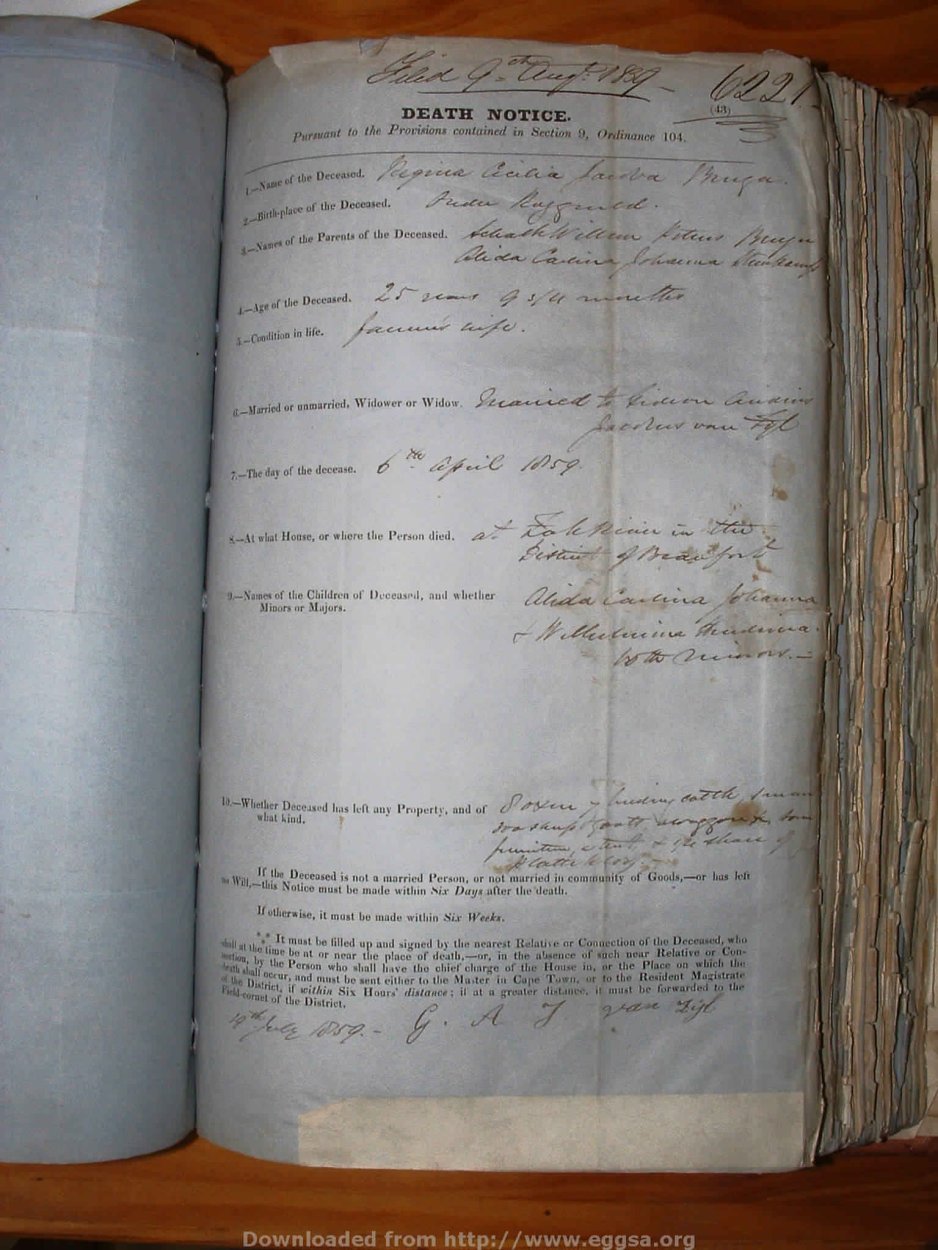 Filed 9th Augt. 1859 - 6221
(43)
DEATH NOTICE.
Pursuant to the Provisions contained in Section 9, Ordinance 104.
1.—Name of the Deceased. Regina Cicilia Jacoba
2.—Birth-place of the Deceased. Onder
3.—Names of the Parents of the Deceased. Willem
Alida Carlina Johanna
4.—Age of the Deceased. 25 years 9 3/4 months
5.—Condition in life. farmer's wife.
6.—Married or unmarried, Widower or Widow. Married to Gideon Andries
Jacobus van Zyl
7.—The day of the decease. 6th April 1859.
8.—At what House, or where the Person died. at Zak River in the
District of Beaufort
9.—Names of the Children of Deceased, and whether Alida Carlina Johanna
Minors or Majors.
& Wilhelmina
both minors.—
10.—Whether Deceased has left any Property, and of 8 oxen breeding cattle
what kind. waggon
furniture a tent & share of
If the Deceased is not a married Person, or not married in community of Goods,—or has left
no Will,—this Notice must be made within Six Days after the death.
If otherwise, it must be made within Six Weeks.
⁂ It must be filled up and signed by the nearest Relative or Connection of the Deceased, who
shall at the time be at or near the place of death,—or, in the absence of such near Relative or Con-
nection, by the Person who shall have the chief charge of the House in, or the Place on which the
death shall occur, and must be sent either to the Master in Cape Town, or to the Resident Magistrate
of the District, if within Six Hours' distance; if at a greater distance, it must be forwarded to the
Field-cornet of the District.
July 1859.- G. A. J van Zijl
Downloaded from http://www.eggsa.org